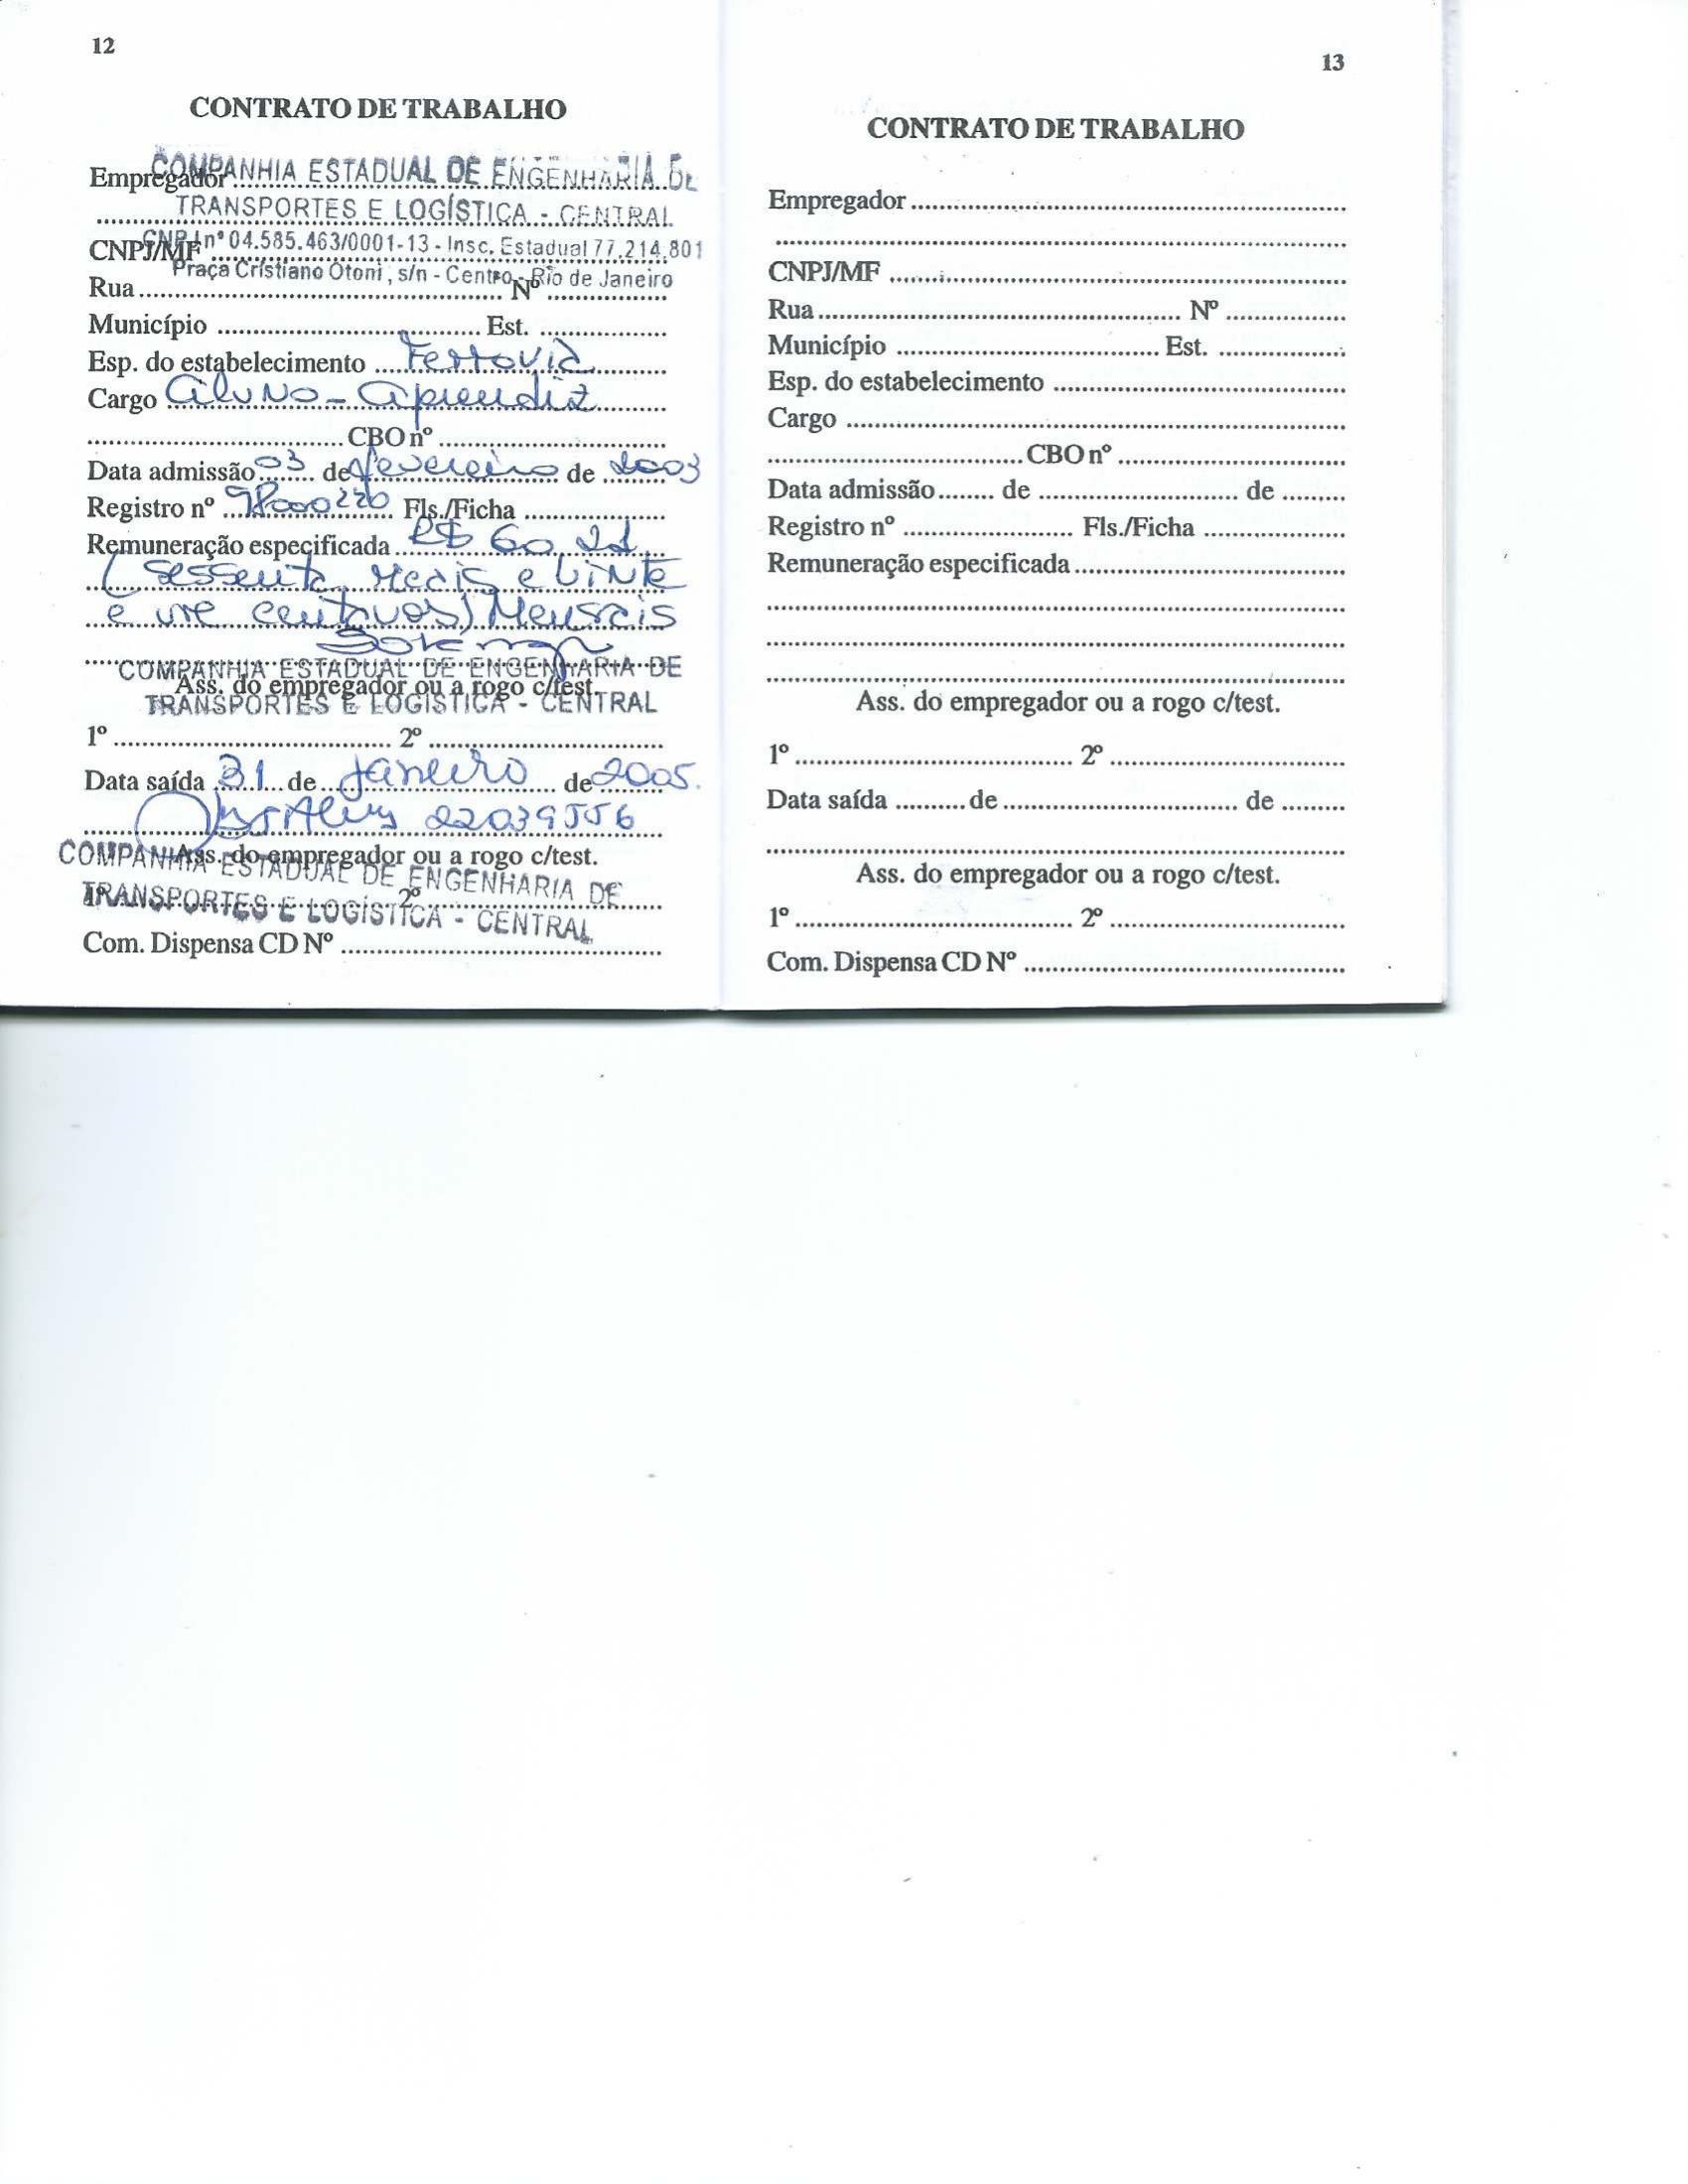 12
CONTRATO DE TRABALHO
Empregador COMPANHIA ESTADUAL DE ENGENHARIA DE
TRANSPORTES E LOGÍSTICA - CENTRAL
CNPJ/MF CNPJ nº 04.585.463/0001-13 - Insc. Estadual 77.214.801
Praça Cristiano Otoni, s/n - Centro - Rio de Janeiro
Rua Nº
Município Est.
Esp. do estabelecimento Ferrovia
Cargo Aluno - Aprendiz
CBO nº
Data admissão 03 de fevereiro de 2003
Registro nº 98000220 Fls./Ficha
Remuneração especificada R$ 60,21
(sessenta reais e vinte
e um centavos) Mensais
COMPANHIA ESTADUAL DE ENGENHARIA DE
Ass. do empregador ou a rogo c/test.
TRANSPORTES E LOGÍSTICA - CENTRAL
1º 2º
Data saída 31 de Janeiro de 2005.
22039556
Ass. do empregador ou a rogo c/test.
COMPANHIA ESTADUAL DE ENGENHARIA DE
TRANSPORTES E LOGÍSTICA - CENTRAL
2º
Com. Dispensa CD Nº
13
CONTRATO DE TRABALHO
Empregador
CNPJ/MF
Rua Nº
Município Est.
Esp. do estabelecimento
Cargo
CBO nº
Data admissão de de
Registro nº Fls./Ficha
Remuneração especificada
Ass. do empregador ou a rogo c/test.
1º 2º
Data saída de de
Ass. do empregador ou a rogo c/test.
1º 2º
Com. Dispensa CD Nº